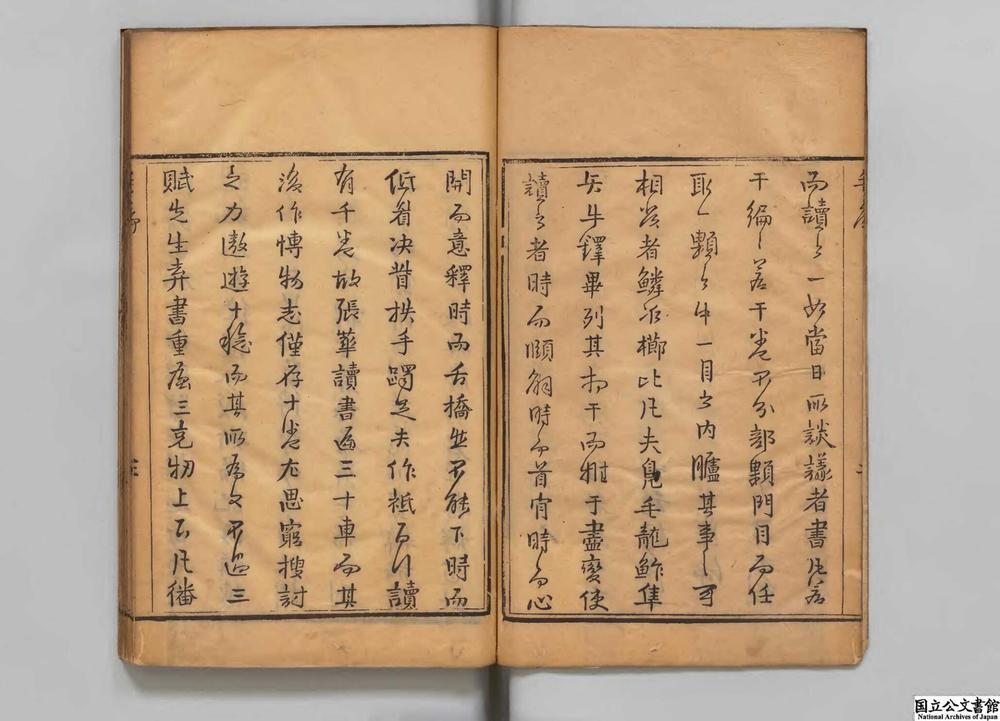 而讀之一如當日所談議者書凡若
干編編若干卷不分部類門目而任
取一類之中一目之内臚其事事可
相發者鱗次櫛比凡夫鳧毛龍鮓隼
矢牛鐸畢列其
于盡變使
讀之者時而頤解時而首肯時而心
開而意釋時而舌撟然不能下時而
低眉決眥抶手躅足夫作祗百行讀
有千卷故張華讀書逾三十車而其
後作博物志僅存十卷左思窮搜討
之力遨遊十稔而其所為文不過三
賦先生弃書重
三
物上下凡
國立公文書館
National Archives of Japan